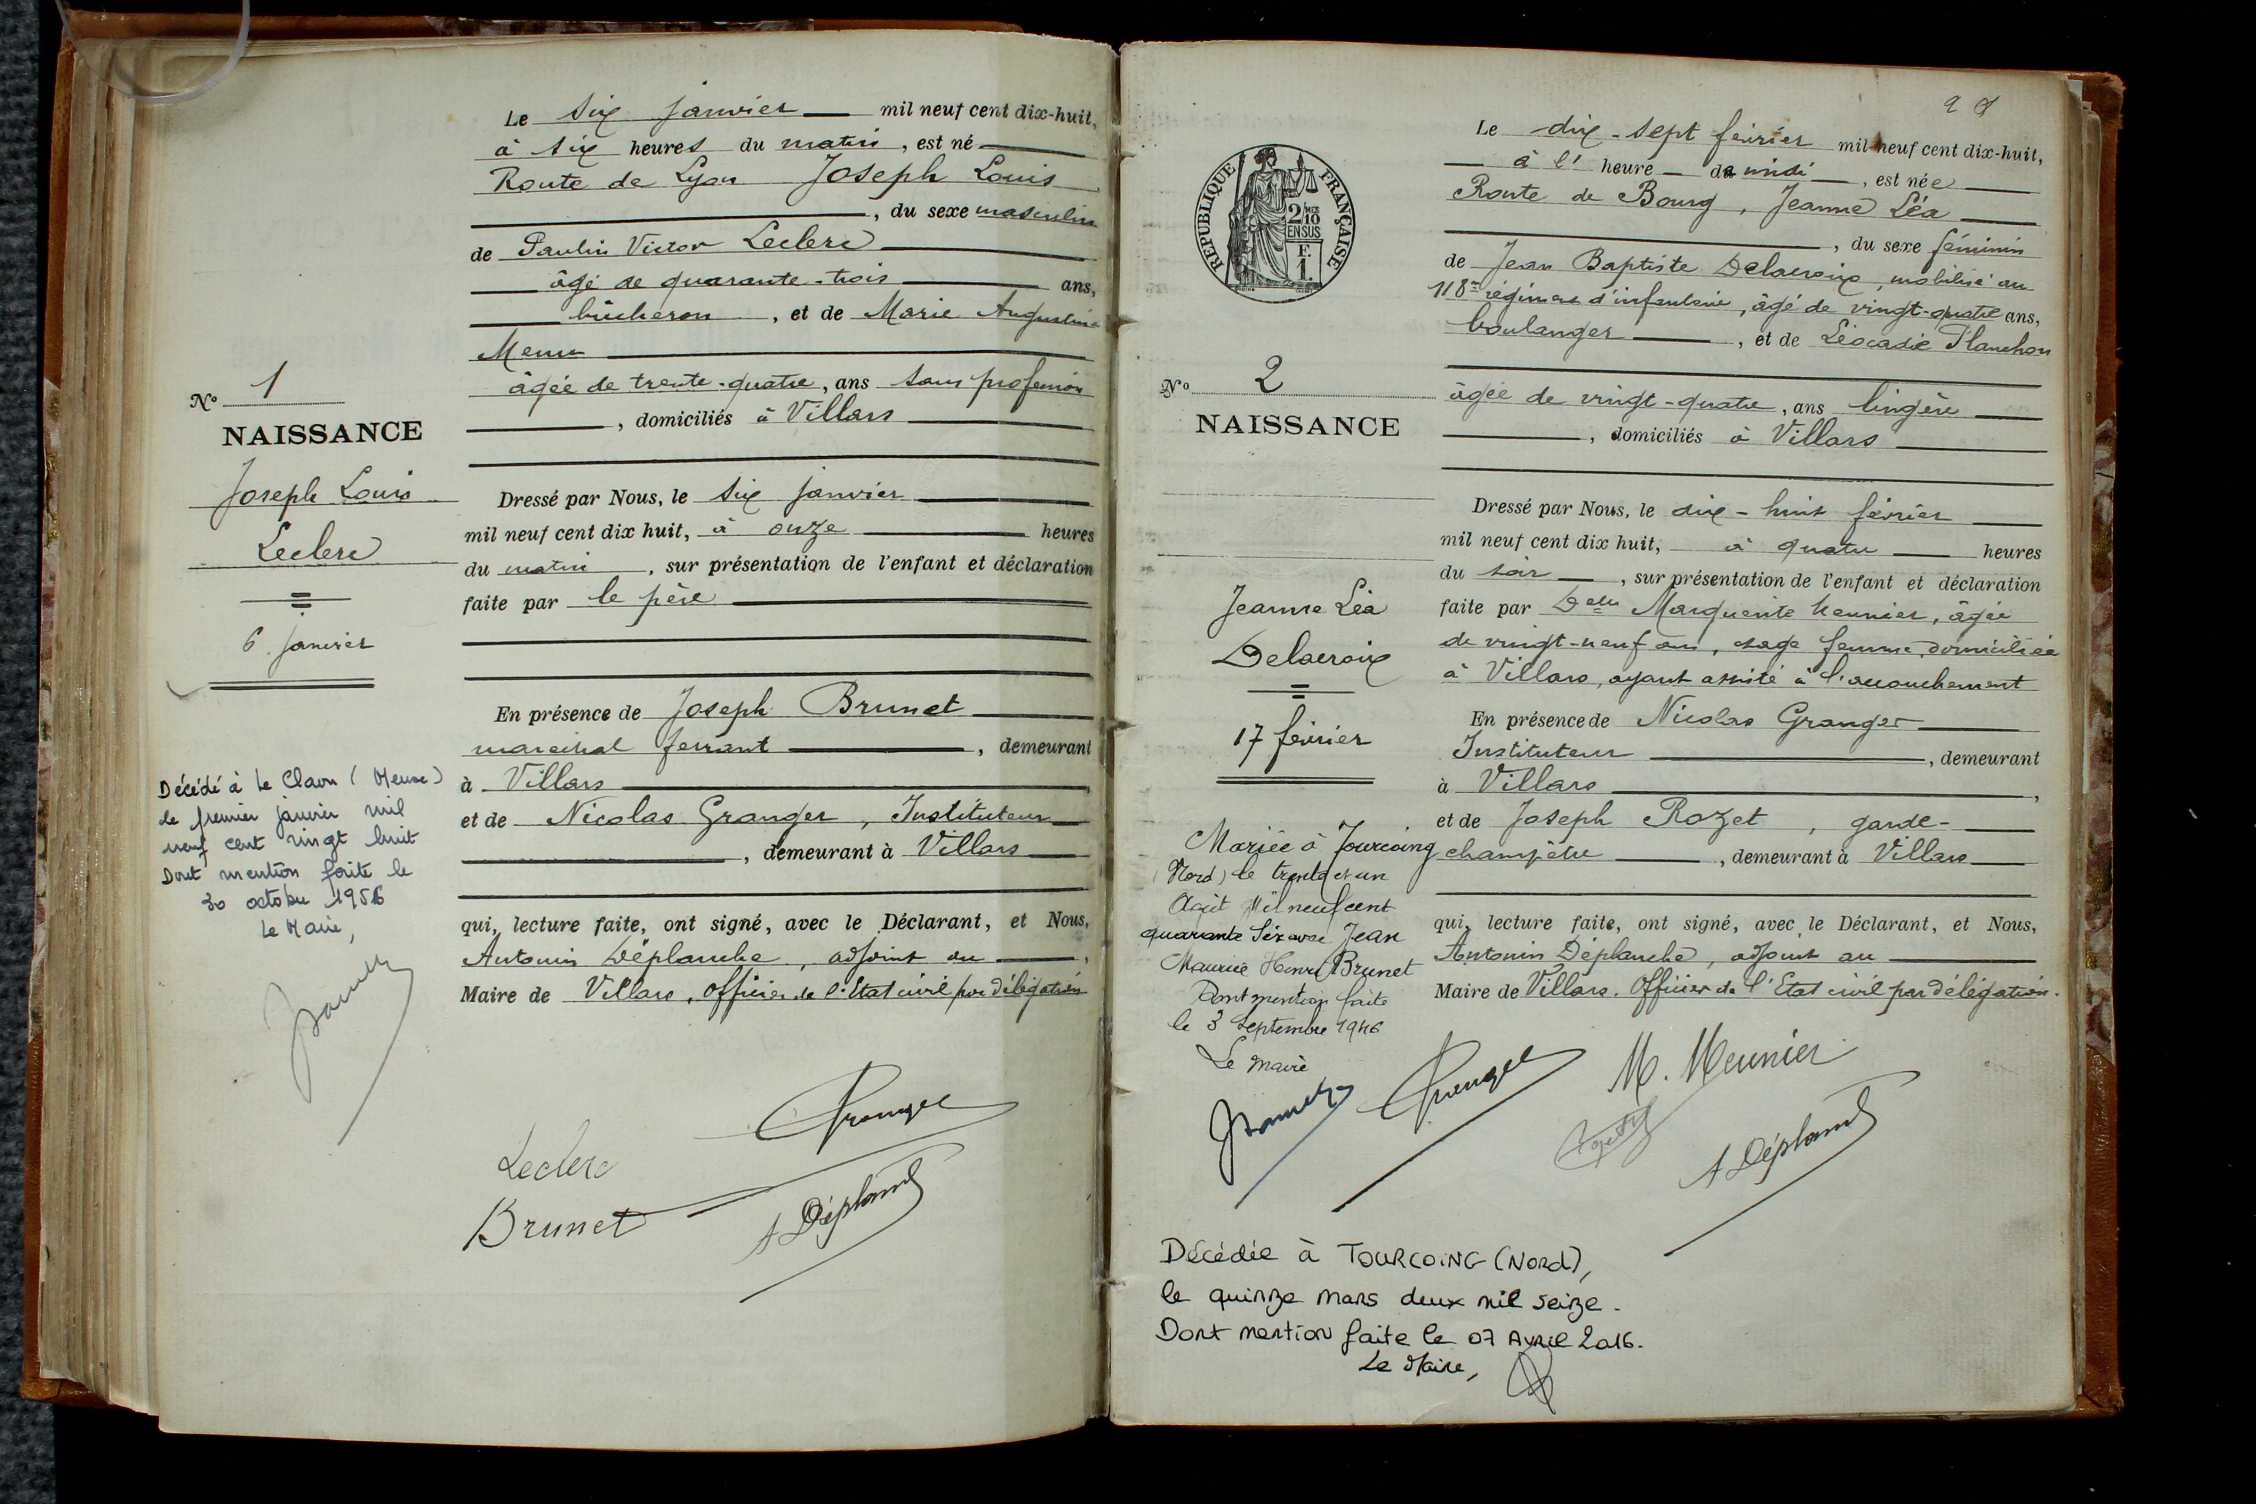 Le six janvier mil neuf cent dix-huit,
à six heures du matin, est né
Route de Lyon Joseph Louis
, du sexe masculin
de Paulin Victor Leclerc
âgé de quarante-trois ans,
bûcheron, et de Marie Augustine
Menu
âgée de trente-quatre, ans sans profession
, domiciliés à Villars
Nº 1
NAISSANCE
Joseph Louis
Leclerc
6 janvier
Dressé par Nous, le six janvier
mil neuf cent dix huit, à onze heures
du matin, sur présentation de l'enfant et déclaration
faite par le père
En présence de Joseph Brunet
marechal ferrant, demeurant
à Villars
et de Nicolas Granger, Instituteur
, demeurant à Villars
qui, lecture faite, ont signé, avec le Déclarant, et Nous,
Antonin Déplanche, adjoint au
Maire de Villars, officier de l'Etat civil par délégation
Décédé à Le Claon (Meuse)
le premier janvier mil
neuf cent vingt huit
Dont mention faite le
30 octobre 1956
Le Maire,
Granger
Leclerc
Brunet
A Déplanche
2
Le dix-sept février mil neuf cent dix-huit,
à l' heure de midi, est née
Route de Bourg, Jeanne Léa
, du sexe féminin
de Jean Baptiste Delacroix, mobilisé au
118me régiment d'infanterie, âgé de vingt-quatre ans,
boulanger, et de Léocadie Planchon
âgée de vingt-quatre, ans lingère
, domiciliés à Villars
RÉPUBLIQUE FRANÇAISE
2/10
EN SUS
F.
1.
Nº 2
NAISSANCE
Jeanne Léa
Delacroix
17 février
Dressé par Nous, le dix-huit février
mil neuf cent dix huit, à quatre heures
du soir, sur présentation de l'enfant et déclaration
faite par Delle Marguerite Meunier, âgée
de vingt-neuf ans, sage femme, domiciliée
à Villars, ayant assisté à l'accouchement
En présence de Nicolas Granger
Instituteur, demeurant
à Villars,
et de Joseph Rozet, garde-
champêtre, demeurant à Villars
qui, lecture faite, ont signé, avec le Déclarant, et Nous,
Antonin Déplanche, adjoint au
Maire de Villars. Officier de l'Etat civil par délégation.
Mariée à Tourcoing
(Nord) le trente et un
Août Mil neuf cent
quarante Six avec Jean
Maurice Henri Brunet
Dont mention faite
le 3 Septembre 1946
Le Maire
Granger
M. Meunier
A Déplanche
Décédée à TOURCOING (Nord),
le quinze mars deux mil seize.
Dont mention faite le 07 AVRIL 2016.
Le Maire,